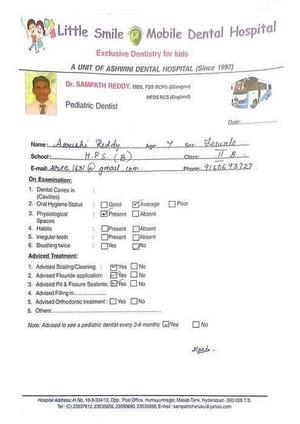 Little Smile Mobile Dental Hospital
Exclusive Dentistry for kids
A UNIT OF ASHWINI DENTAL HOSPITAL (Since 1997)
Dr. SAMPATH REDDY, MDS, FDS RCPS (Glasgow)
MFDS RCS (England)
Pediatric Dentist
Date:
Name: Reddy Age: 7 Sex: Female
School: H.P.S. (B) Class: II B
E-mail: @gmail.com Phone: 9160693727
On Examination:
1. Dental Caries in :
(Cavities)
2. Oral Hygiene Status : Good Average Poor
3. Physiological : Present Absent
Spaces
4. Habits : Present Absent
5. Irregular teeth : Present Absent
6. Brushing twice : Yes No
Adviced Treatment:
1. Advised Scaling/Cleaning : Yes No
2. Advised Flouride application: Yes No
3. Advised Pit & Fissure Sealants: Yes No
4. Advised Filling in
5. Advised Orthodontic treatment : Yes No
6. Others:
Note: Advised to see a pediatric dentist every 3-6 months. Yes No
Hospital Address: H.No. 10-3-304/13, Opp. Post Office, Humayunnagar, Masab Tank, Hyderabad - 500 028 T.S.